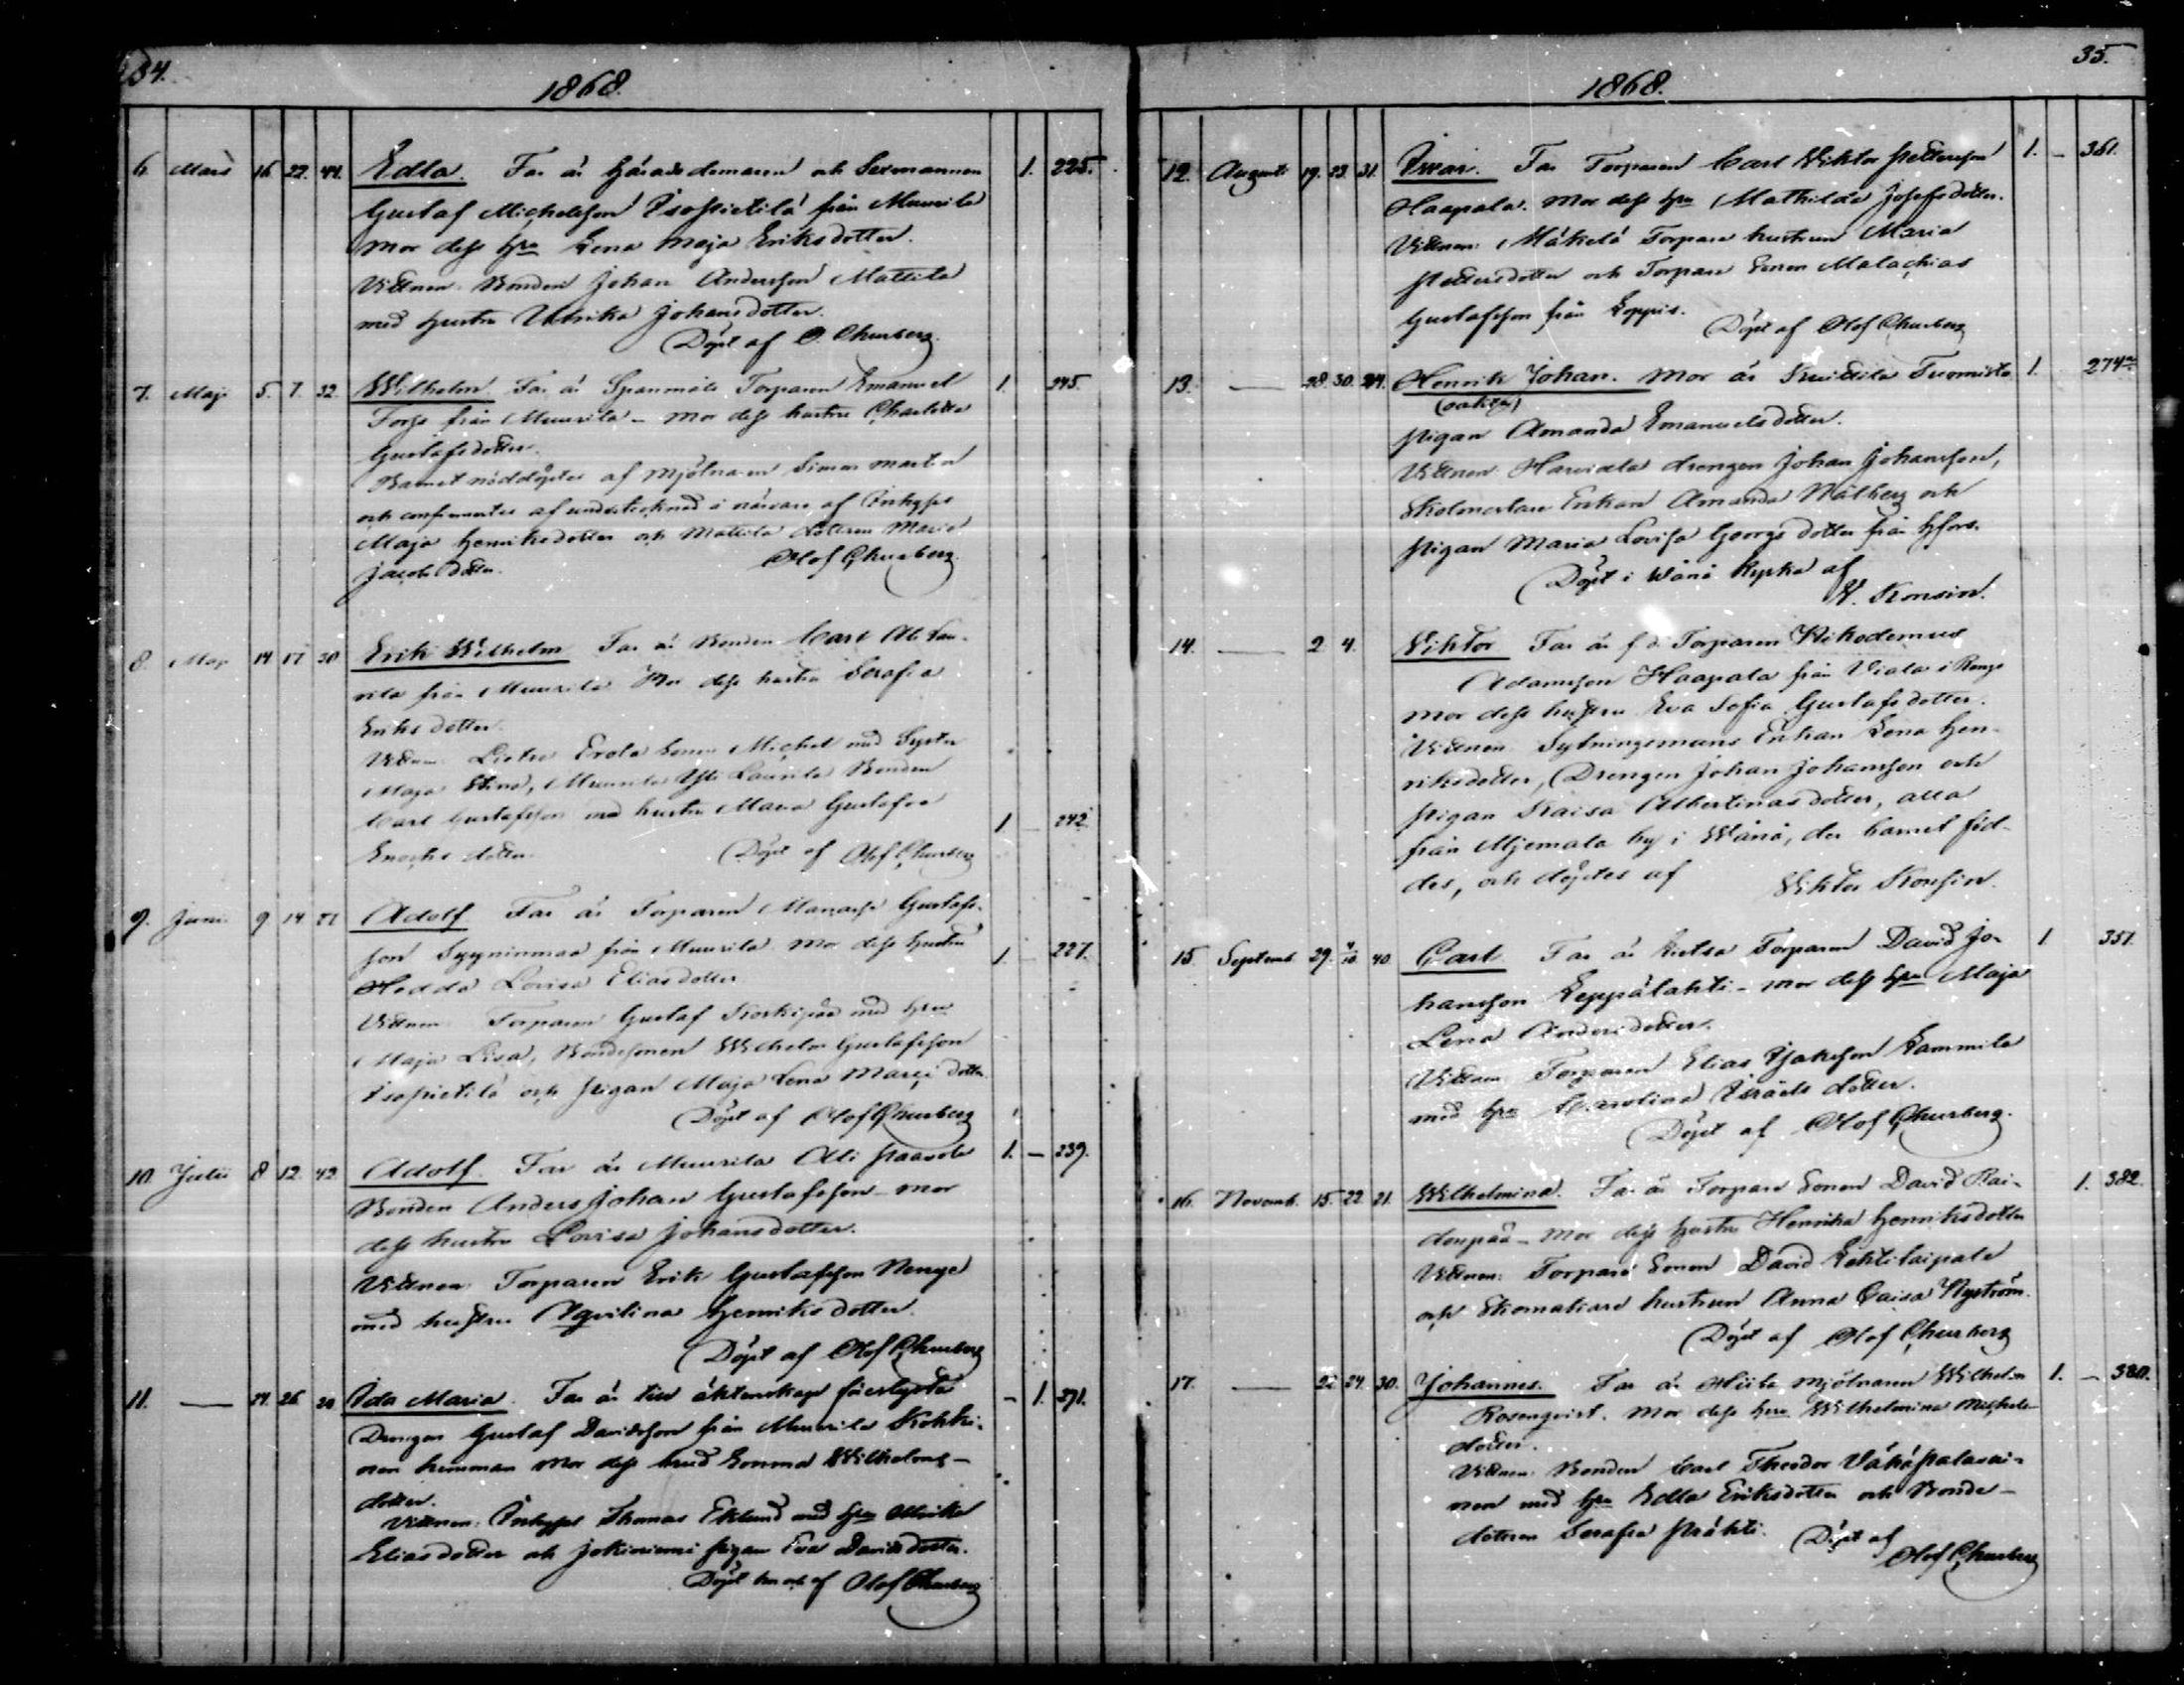 34.
1868.
6. Mars 16. 22. 44. Edla. Far är Häradsdomaren och Sexmannen 1. 225.
Gustaf Michelsson Isopietilä från Muurila
Mor dess hru Lena Maja Eriksdotter.
Vittnen. Bonden Johan Andersson Mattila
med hustru Ulrika Johansdotter.
Döpt af O. Churberg.
7. Maji 5. 7. 32. Wilhelm Far är Spanmåls Torparen Emanuel 1. 245.
Forss från Muurila – Mor dess hustru Charlotta
Gustafsdotter.
Barnet nöddöptes af Mjölnaren Simon Martin
och confirmertes af undertecknad i närvaro af Inhyses
Maja Henriksdotter och Mattila dottren Maria
Jacobsdotter. Olof Churberg.
8. Maji 14 17 30 Erik Wilhelm Far är Bonden Carl Ali Lau-
rila från Muurila Mor dess hustru Serafia
Eriksdotter.
Vittnen. Erola sonen Michel med Syster
Maja Stina, Muurila Yli Laurila Bonden
Carl Gustafsson med hustru Maria Gustafva 1 242
Enochs dotter. Döpt af Olof Churberg
9. Juni 9. 14 Adolf Far är Torparen Manasse Gustafs-
son från Muurila. Mor dess hustru 1. 227.
Hedda Lovisa Eliasdotter
Vittnen Torparen Gustaf Koskipää med hru
Maja Lisa, Bondesonen Wilhelm Gustafsson
Isopietilä och pigan Maja Lena dotter.
Döpt af Olof Churberg
10. Julii 8 12. 42. Adolf. Far är Muurila Alli Paavola 1. – 239.
Bonden Anders Johan Gustafsson – mor
dess hustru Lovisa Johansdotter.
Vittnen Torparen Erik Gustafsson
med hustru Henriksdotter.
Döpt af Olof Churberg
11. — 24. 26 20 Ida Maria. Far är till äktenskap förelyste – 1. 271.
Drengen Gustaf Davidsson från Muurila Kohki-
nen hemman Mor dess brud Emma Wilhelms-
dotter.
Vittnen. Inhyses Thomas Eklund med hru Ulrika
Eliasdotter och Jokiniemi pigan Eva Davidsdotter.
Döpt af Olof Churberg
35.
1868.
12. Augusti 19. 23. 31. Iwar. Far Torparen Carl Wiktor Pettersson 1. – 361.
Haapala. Mor dess hru Mathilda Josefsdotter.
Vittnen: Mäkelä Torpare hustrun Maria
Pettersdotter och Torpare Sonen Malachias
Gustafsson från Loppis. Döpt af Olof Churberg
13. — 28. 30. 24. Henrik Johan. Mor är Tuomisto 1. 274
(oäkta)
pigan Amanda Emanuelsdotter.
Vittnen Harviala drengen Johan Johansson,
Enkan Amanda Wälberg och
pigan Maria Lovisa Georgsdotter från Hfors.
Döpt i Wånå Kyrka af
V. Konsin.
14. — 2. 4. Viktor Far är f.d. Torparen Nikodemus
Adamsson Haapala från Viala i Renge
Mor dess hustru Eva Sofia Gustafsdotter.
Vittnen Sytningsmans Enkan Lena Hen-
riksdotter, Drengen Johan Johansson och
pigan Kaisa Albertinasdotter, alla
från Mjemala by i Wånå, der barnet föd-
des, och döptes af Viktor Konsin.
15. Septemb. 29. 4/10. 40 Carl Far är Torparen David Jo- 1 351
hansson Leppälahti – mor dess hru Maja
Lena Andersdotter.
Vittnen Torparen Elias Isaksson Lammila
med hru Carolina Israelsdotter.
Döpt af Olof Churberg.
16. Novemb. 15. 22. 21. Wilhelmina. Far är Torpare Sonen David Rai- 1. 382.
donpää – Mor dess hustru Henrika Henriksdotter
Vittnen: Torpare Sonen David
och Skomakare hustrun Anna Caisa Nyström.
Döpt af Olof Churberg
17. — 22 24. 30. Johannes. Far är mjölnaren Wilhelm 1. – 380.
Rosenqvist. Mor dess hru Wilhelmina Michels-
dotter.
Vittnen: Bonden Carl Theodor Vähäpalasi-
nen med hru Edla Eriksdotter och Bonde-
dottren Serafia Prähti. Döpt af
Olof Churberg